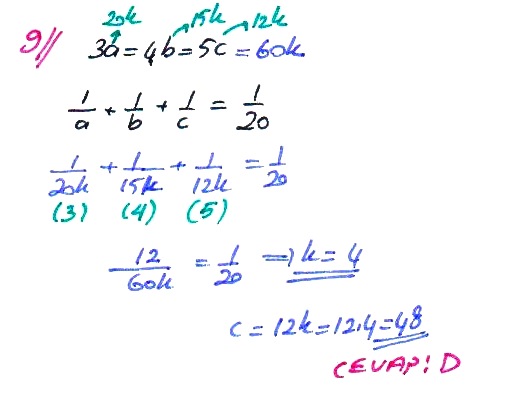 20k 15k 12k
9// 3a = 4b = 5c = 60k
1/a + 1/b + 1/c = 1/20
1/20k + 1/15k + 1/12k = 1/20
(3) (4) (5)
12/60k = 1/20 ⇒ k = 4
c = 12k = 12.4 = 48
CEVAP: D